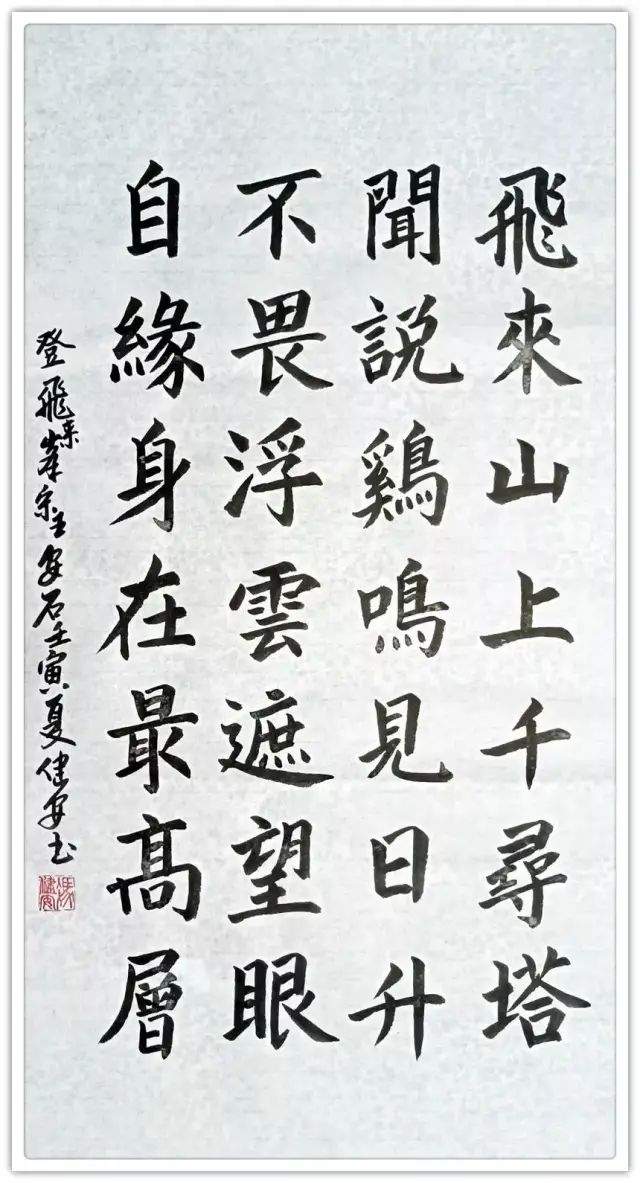 飛來山上千尋塔
聞說鷄鳴見日升
不畏浮雲遮望眼
自緣身在最高層
登飛來峯宗王安石壬寅夏健安书